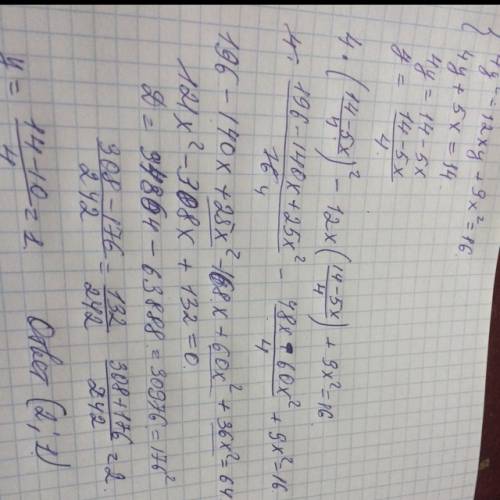 4y² - 12xy + 9x² = 16
4y + 5x = 14
4y = 14 - 5x
y = (14 - 5x)/4
4 · ((14 - 5x)/4)² - 12x((14 - 5x)/4) + 9x² = 16
4 · (196 - 140x + 25x²)/16 4 - (48x - 60x²)/4 + 9x² = 16
196 - 140x + 25x² - 168x + 60x² + 36x² = 64
121x² - 308x + 132 = 0
D = 94864 - 63888 = 30976 = 176²
(308 - 176)/242 = 132/242 (308 + 176)/242 = 2
y = (14 - 10)/4 = 1 Ответ (2; 1)